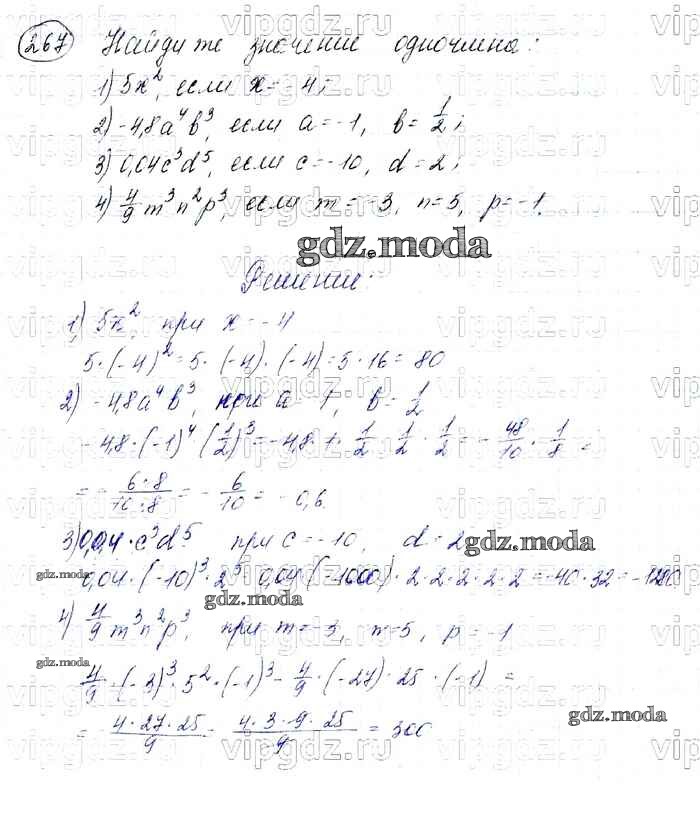 267 Найдите значение одночлена:
1) 5x², если x = -4;
2) -4,8a⁴b³, если a = -1, b = 1/2;
3) 0,04c³d⁵, если c = -10, d = 2;
4) 4/9 m³n²p³, если m = -3, n = 5, p = -1.
gdz.moda
Решение:
1) 5x², при x = -4
5·(-4)² = 5·(-4)·(-4) = 5·16 = 80
2) -4,8a⁴b³, при a = -1, b = 1/2
-4,8·(-1)⁴·(1/2)³ = -4,8·1·1/2·1/2·1/2 = -48/10·1/8 =
= -6·8/10·8 = -6/10 = -0,6.
3) 0,04·c³d⁵ при c = -10, d = 2
gdz.moda
0,04·(-10)³·2⁵ 0,04·(-1000)·2·2·2·2·2 = -40·32 = -1280
gdz.moda
gdz.moda
4) 4/9 m³n²p³, при m = -3, n = 5, p = -1
gdz.moda
4/9·(-3)³·5²·(-1)³ = 4/9·(-27)·25·(-1) =
= 4·27·25/9 = 4·3·9·25/9 = 300
gdz.moda
vipgdz.ru